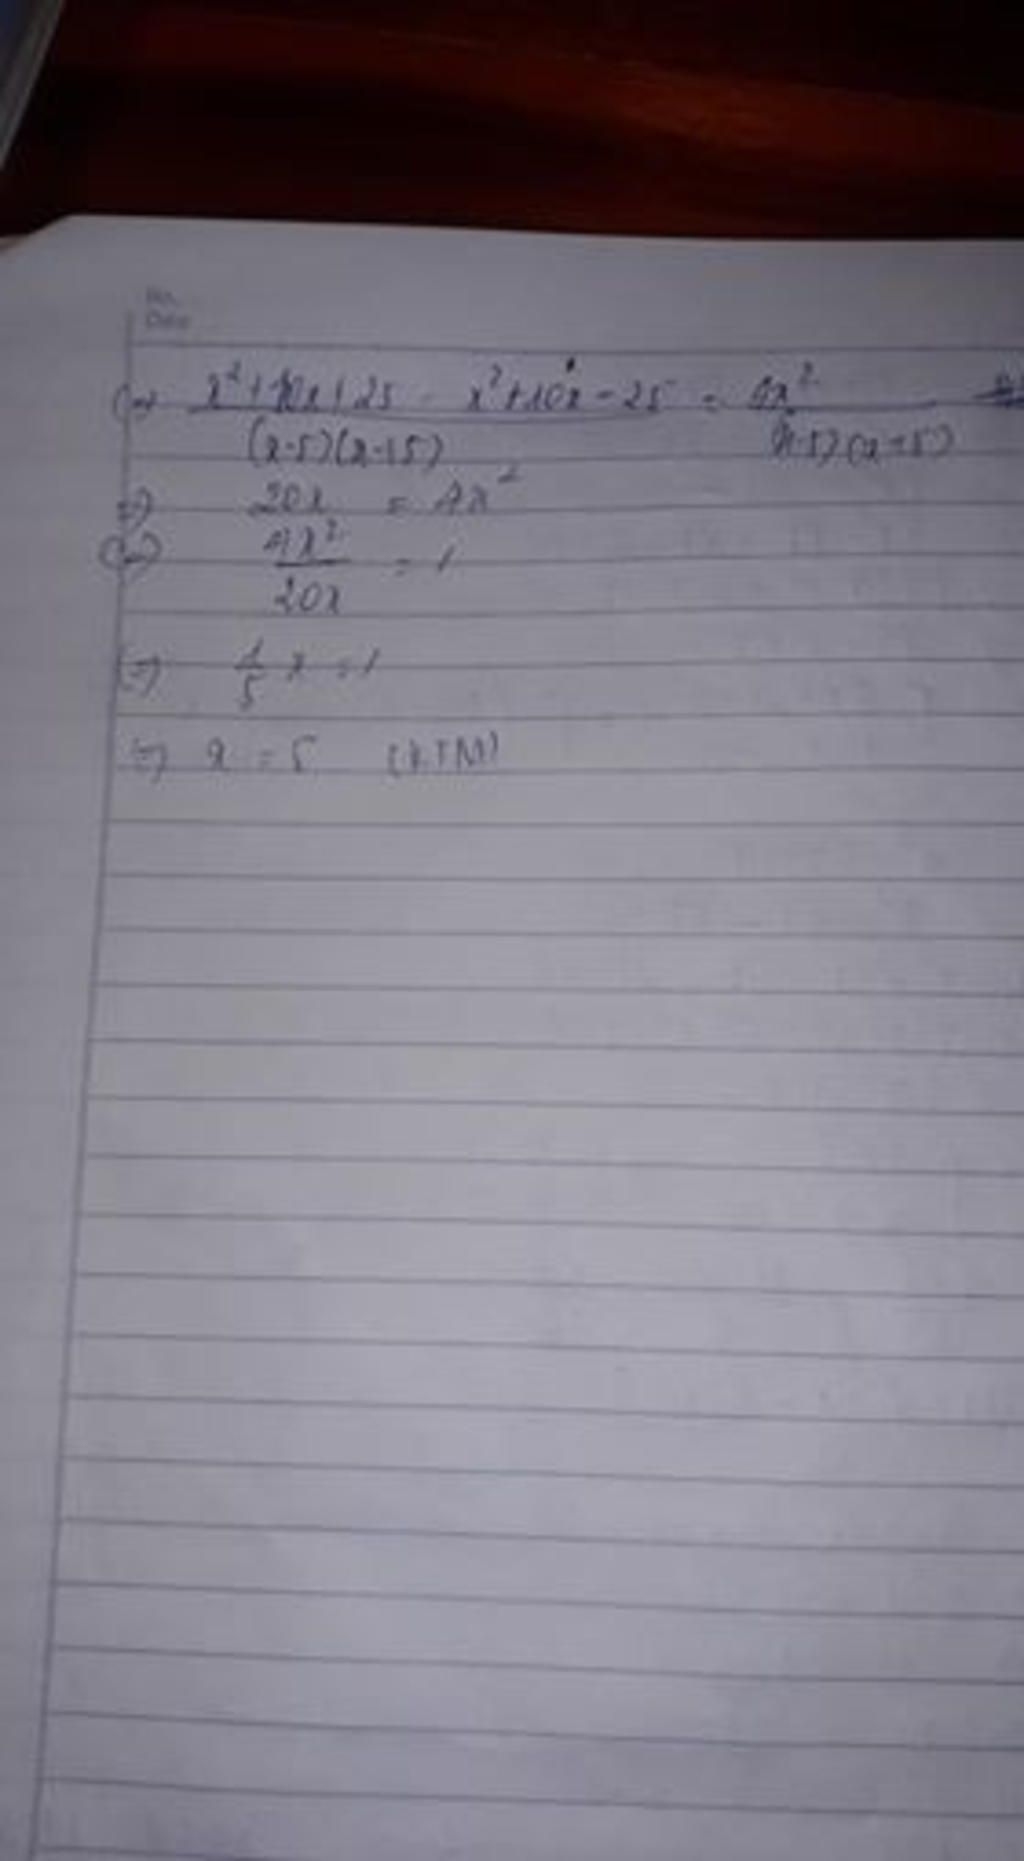 No.
Date
(=) x²+10x+25 - x²+10x-25 = 4x²
(x-5)(x+5) (x-5)(x+5)
=) 20x = 4x²
(=) 4x²/20x = 1
(=) 1/5 x = 1
=) x = 5 (KTM)